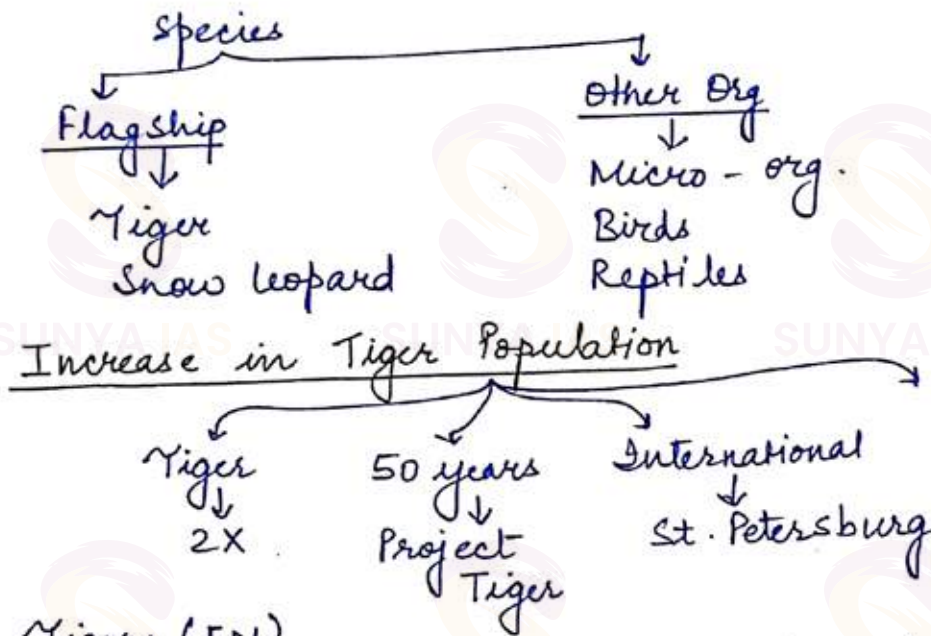 Species
Flagship
Other Org
Tiger
Snow leopard
Micro - org.
Birds
Reptiles
SUNYA IAS
SUNYA IAS
SUNYA
Increase in Tiger Population
Tiger
2X
50 years
Project
Tiger
International
St. Petersburg